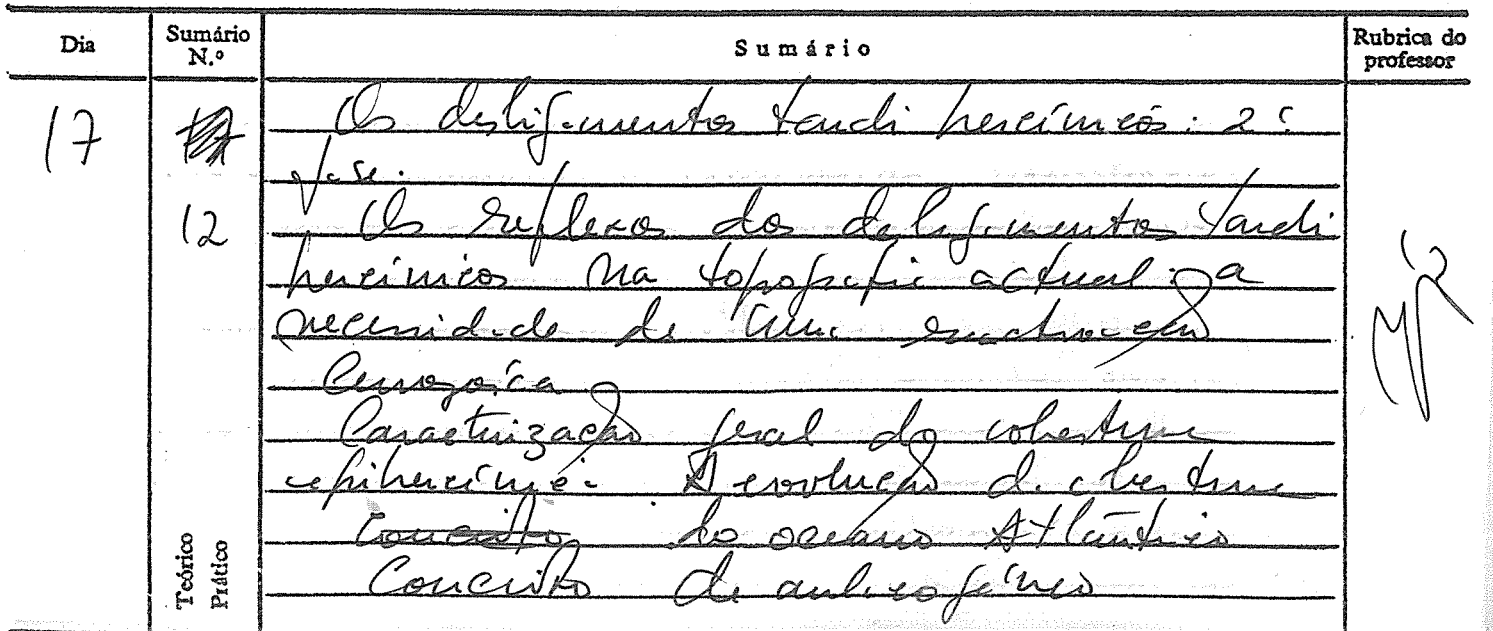 Dia
Sumário N.º
Sumário
Rubrica do professor
17
12
Os desligamentos tardi hercínicos: 2ª
fase.
Os reflexos dos desligamentos tardi
hercínicos na topografia actual: a
necessidade de uma reactivação
Cenozóica
Caracterização geral da cobertura
epihercínica. A evolução da abertura
Conceito do oceano Atlântico
Conceito de aulacogéneo
Teórico
Prático